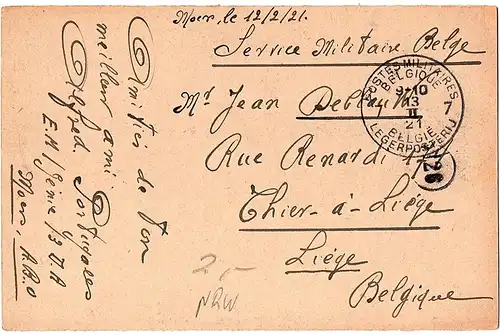 Moers, le 12/2/21.
Service Militaire Belge
Mr Jean
Rue Renardi
Thier-à-Liège
Liège
Belgique
Amitiés de ton
meilleur ami
Alfred Portugaels
E.M/Génie/3 D.A
Moers, A.B.O
POSTES MILITAIRES
BELGIQUE
9-10
13
II
21
7
BELGIË
LEGERPOSTERIJ
126
2.-
NRW